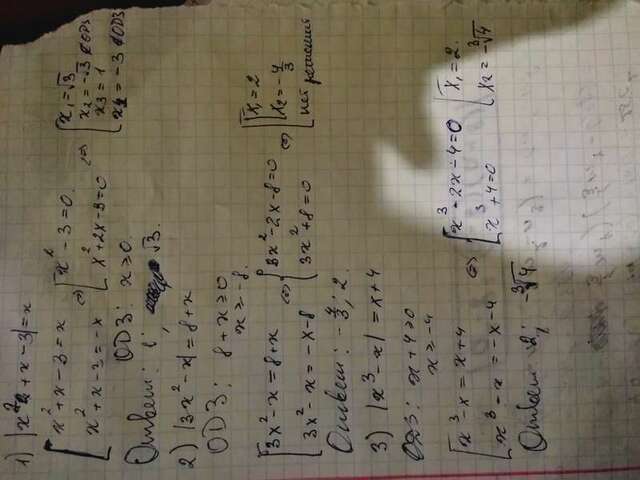 1) |x² + x - 3| = x
[ x² + x - 3 = x
x² + x - 3 = -x
<=> [ x² - 3 = 0
x² + 2x - 3 = 0
<=> [ x₁ = √3
x₂ = -√3 ∉ ОДЗ
x₃ = 1
x₄ = -3 ∉ ОДЗ
ОДЗ: x ≥ 0.
Ответ: 1; √3.
2) |3x² - x| = 8 + x
ОДЗ: 8 + x ≥ 0
x ≥ -8.
[ 3x² - x = 8 + x
3x² - x = -x - 8
<=> [ 3x² - 2x - 8 = 0
3x² + 8 = 0
<=> [ x₁ = 2
x₂ = -4/3
нет решений
Ответ: -4/3; 2.
3) |x³ - x| = x + 4
ОДЗ: x + 4 ≥ 0
x ≥ -4
[ x³ - x = x + 4
x³ - x = -x - 4
<=> [ x³ - 2x - 4 = 0
x³ + 4 = 0
[ x₁ = 2.
x₂ = -∛4
Ответ: 2; -∛4